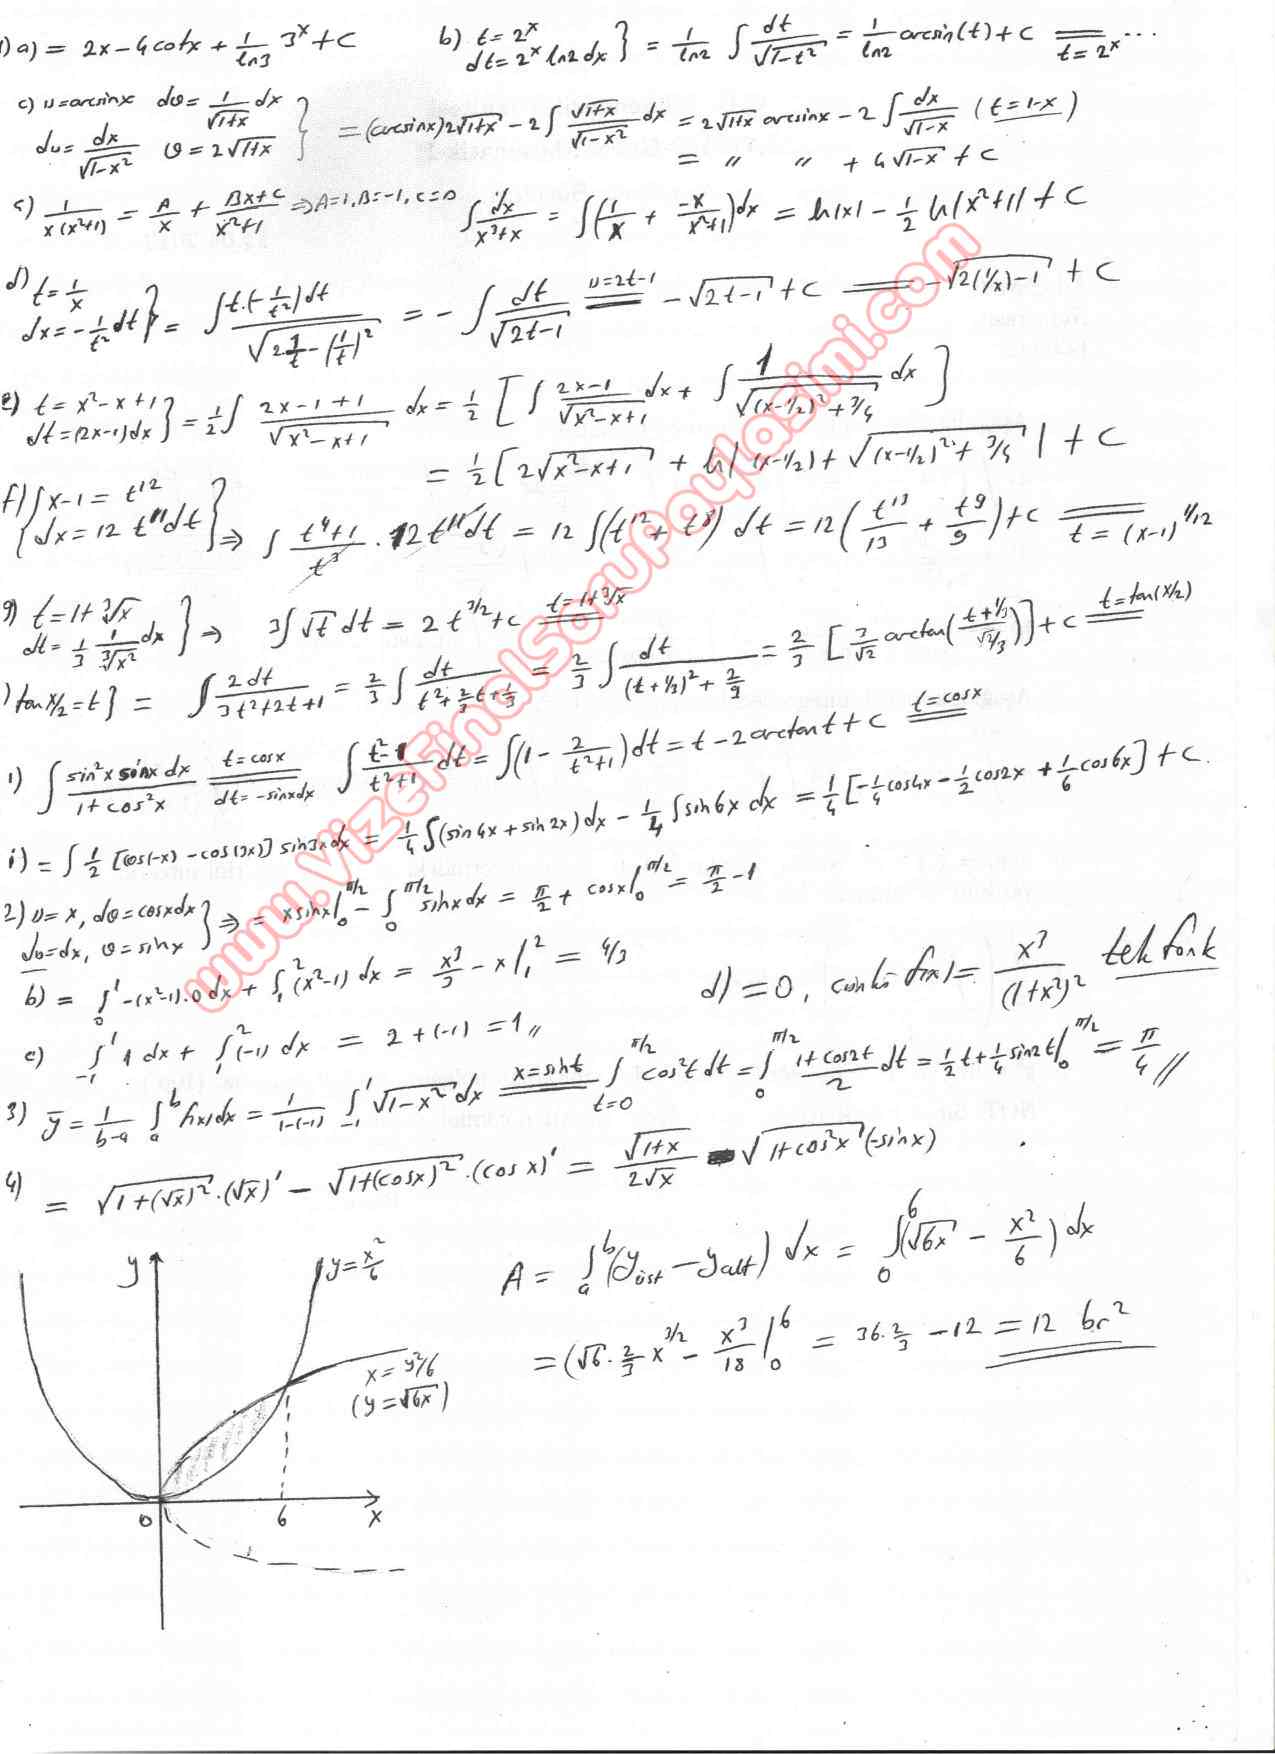 1) a) = 2x - 4cotx + 1/ln3 3^x + C    b) t = 2^x, dt = 2^x ln2 dx } = 1/ln2 ∫ dt/√(1-t²) = 1/ln2 arcsin(t) + C = t=2^x ...
c) u = arcsinx  dʋ = 1/√(1+x) dx, du = dx/√(1-x²)  ʋ = 2√(1+x) } = (arcsinx)2√(1+x) - 2∫ √(1+x)/√(1-x²) dx = 2√(1+x) arcsinx - 2∫ dx/√(1-x) (t=1-x)
= " " + 4√(1-x) + C
c) 1/(x(x²+1)) = A/x + (Bx+C)/(x²+1) ⇒ A=1, B=-1, C=0  ∫ dx/(x³+x) = ∫(1/x + -x/(x²+1))dx = ln|x| - 1/2 ln|x²+1| + C
d) t = 1/x, dx = -1/t² dt } = ∫ t.(-1/t²)dt / √(2 1/t - (1/t)²) = -∫ dt/√(2t-1) u=2t-1 = -√(2t-1) + C = -√(2(1/x)-1) + C
e) t = x²-x+1, dt = (2x-1)dx } = 1/2 ∫ (2x-1+1)/√(x²-x+1) dx = 1/2 [ ∫ (2x-1)/√(x²-x+1) dx + ∫ 1/√((x-1/2)²+3/4) dx ]
= 1/2 [ 2√(x²-x+1) + ln|(x-1/2) + √((x-1/2)²+3/4) | + C
f) { x-1 = t^12, dx = 12 t^11 dt } ⇒ ∫ (t⁴+1)/t³ . 12 t^11 dt = 12 ∫(t^12 + t^8) dt = 12 ( t^13/13 + t^9/9 ) + C = t = (x-1)^1/12
g) t = 1+∛x, dt = 1/3 1/∛x² dx } ⇒ 3∫√t dt = 2 t^3/2 + C t=1+∛x
) tan x/2 = t } = ∫ 2dt/(3t²+2t+1) = 2/3 ∫ dt/(t²+2/3 t+1/3) = 2/3 ∫ dt/((t+1/3)²+2/9) = 2/3 [ 3/√2 arctan( (t+1/3)/(√2/3) ) ] + C t=tan(x/2)
ı) ∫ sin²x sinx dx/(1+cos²x) t=cosx, dt=-sinxdx ∫ (t²-1)/(t²+1) dt = ∫(1 - 2/(t²+1))dt = t - 2arctant + C t=cosx
i) = ∫ 1/2 [cos(-x) - cos(3x)] sin3x dx = 1/4 ∫(sin4x + sin2x)dx - 1/4 ∫sin6x dx = 1/4 [-1/4 cos4x - 1/2 cos2x + 1/6 cos6x] + C.
2) u = x, dʋ = cosxdx, du=dx, ʋ = sinx } ⇒ = xsinx|₀^π/2 - ∫₀^π/2 sinxdx = π/2 + cosx|₀^π/2 = π/2 - 1
b) = ∫₀¹ -(x²-1).0 dx + ∫₁² (x²-1) dx = x³/3 - x |₁² = 4/3    d) = 0, çünkü f(x) = x³/(1+x²)² tek fonk
c) ∫₋₁¹ 1 dx + ∫₁² (-1) dx = 2 + (-1) = 1 //
3) ȳ = 1/(b-a) ∫ₐᵇ f(x)dx = 1/(1-(-1)) ∫₋₁¹ √(1-x²) dx x=sint ∫_{t=0}^{π/2} cos²t dt = ∫₀^π/2 (1+cos2t)/2 dt = 1/2 t + 1/4 sin2t |₀^π/2 = π/4 //
4) = √(1+(√x)²) . (√x)' - √(1+(cosx)²) . (cosx)' = √(1+x)/(2√x) - √(1+cos²x) (-sinx)
y  y = x²/6    A = ∫ₐᵇ (yüst - yalt) dx = ∫₀⁶ (√6x - x²/6) dx
= (√6 . 2/3 x^3/2 - x³/18 |₀⁶ = 36. 2/3 - 12 = 12 br²
x = y²/6
(y = √6x)
0  6  x
www.VizeFinalSoruPaylasimi.com